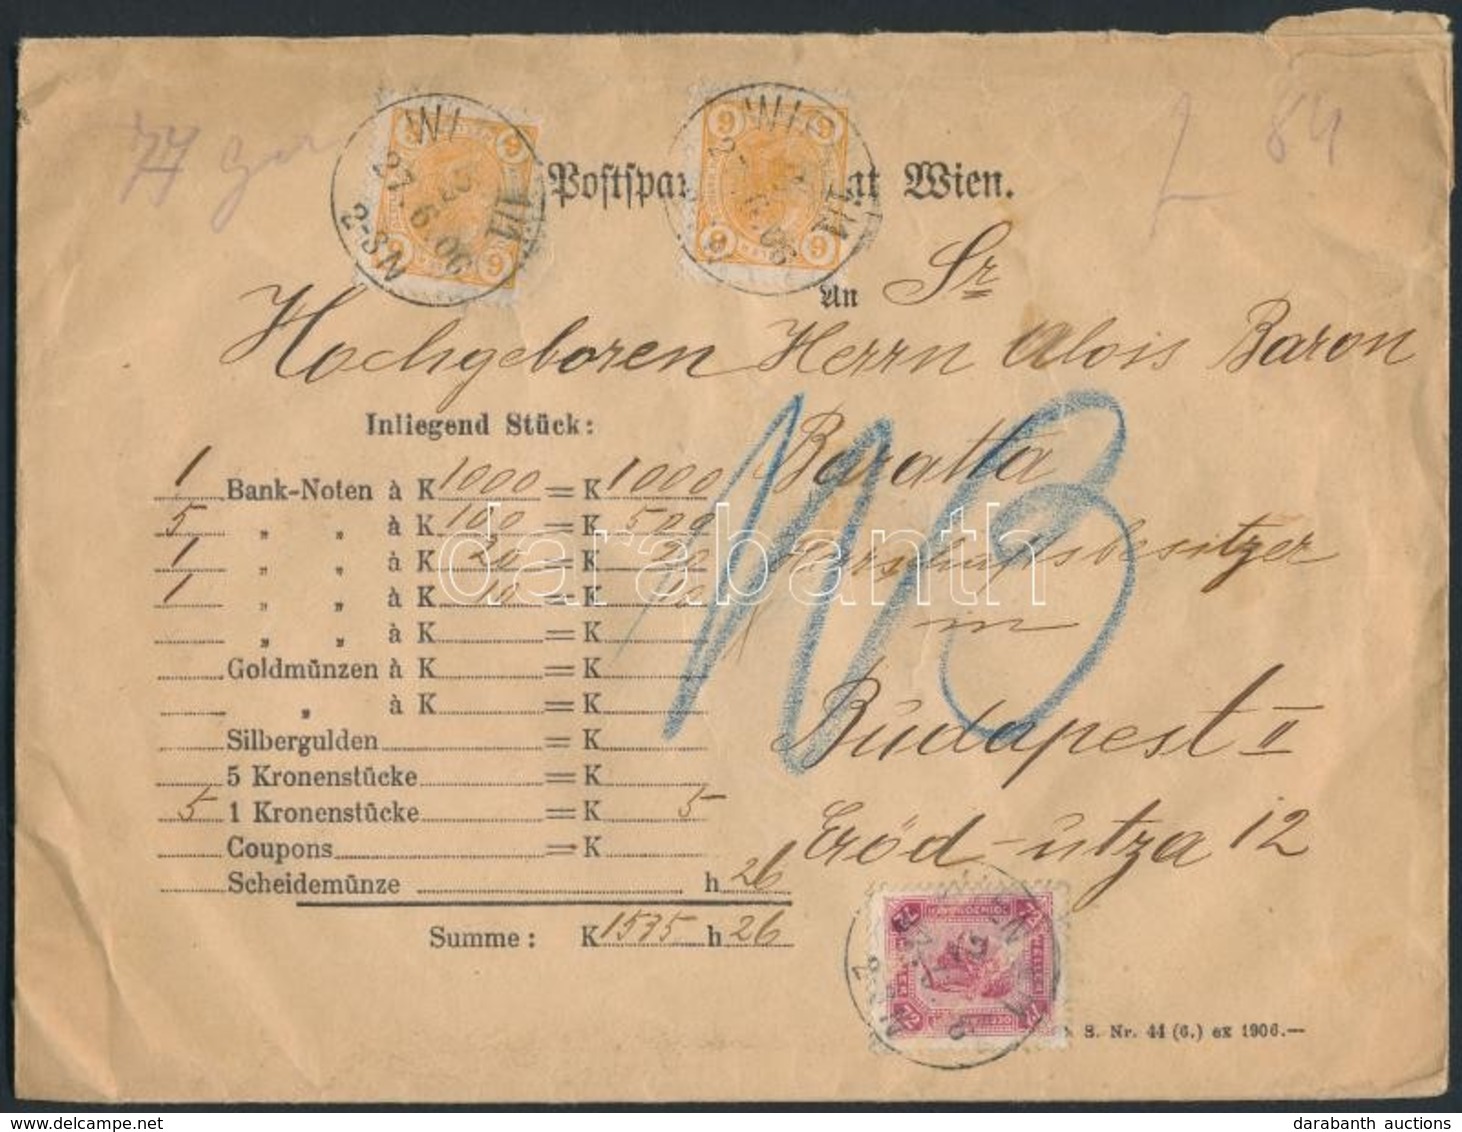 77 gr
L 84
Postspar at Wien.
An Sr
Hochgeboren Herrn Alois Baron
Baratta
Herrschaftsbesitzer
in
Budapest II
Eród-utza 12
113
Inliegend Stück:
1 Bank-Noten à K 1000 = K 1000
5 „ „ à K 100 = K 500
1 „ „ à K 20 = K 20
1 „ „ à K 10 = K 10
„ „ à K = K
Goldmünzen à K = K
„ à K = K
Silbergulden = K
5 Kronenstücke = K
5 1 Kronenstücke = K 5
Coupons = K
Scheidemünze h 26
Summe: K 1535 h 26
S. Nr. 44 (6.) ex 1906.—
WI
27. 6. 06
2-SN
VII
9
72
darabanth
darabanth auctions
www.delcampe.net